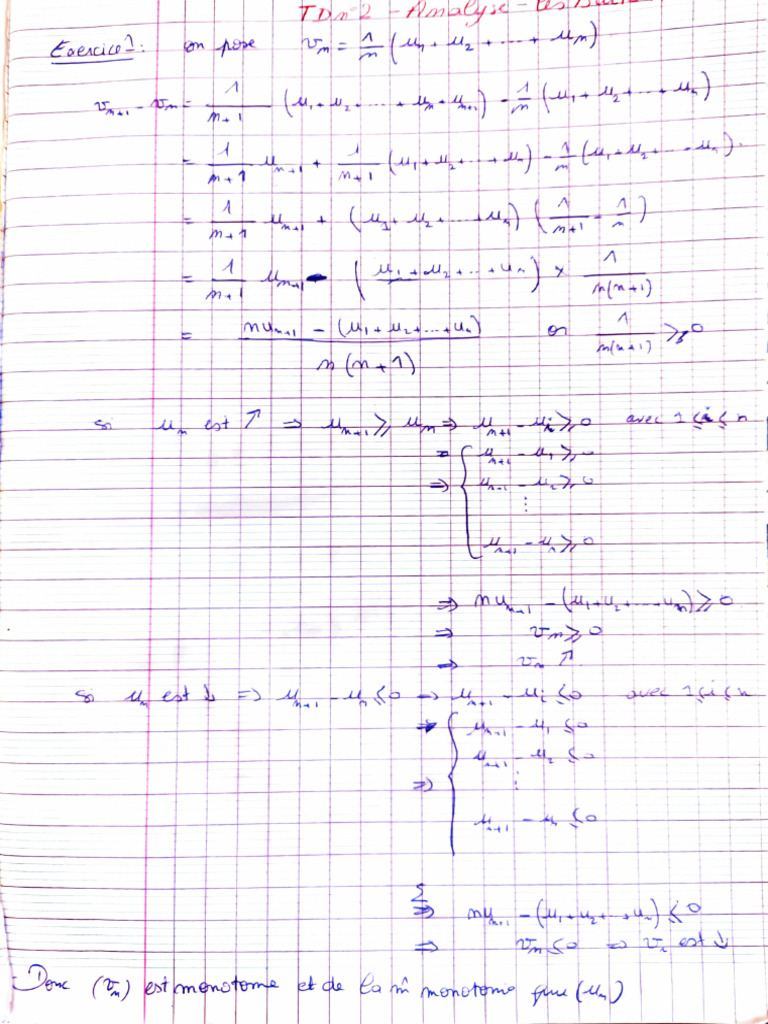 TD n°2 - Analyse - Les Suites
Exercice 1 : on pose v_n = 1/n (u_1 + u_2 + ... + u_n)
v_{n+1} - v_n = 1/(n+1) (u_1 + u_2 + ... + u_n + u_{n+1}) - 1/n (u_1 + u_2 + ... + u_n)
= 1/(n+1) u_{n+1} + 1/(n+1) (u_1 + u_2 + ... + u_n) - 1/n (u_1 + u_2 + ... u_n).
= 1/(n+1) u_{n+1} + (u_1 + u_2 + ... + u_n) (1/(n+1) - 1/n)
= 1/(n+1) u_{n+1} - (u_1 + u_2 + ... + u_n) × 1/(n(n+1))
= (n u_{n+1} - (u_1 + u_2 + ... + u_n)) / (n(n+1)) or 1/(n(n+1)) ⩾ 0
si u_n est ↑ ⇒ u_{n+1} ⩾ u_n ⇒ u_{n+1} - u_i ⩾ 0 avec 1 ⩽ i ⩽ n
⇒ { u_{n+1} - u_1 ⩾ 0
u_{n+1} - u_2 ⩾ 0
⋮
u_{n+1} - u_n ⩾ 0
⇒ n u_{n+1} - (u_1 + u_2 + ... + u_n) ⩾ 0
⇒ v_n ⩾ 0
⇒ v_n ↑
si u_n est ↓ ⇒ u_{n+1} - u_n ⩽ 0 ⇒ u_{n+1} - u_i ⩽ 0 avec 1 ⩽ i ⩽ n
⇒ { u_{n+1} - u_1 ⩽ 0
u_{n+1} - u_2 ⩽ 0
⋮
u_{n+1} - u_n ⩽ 0
Σ ⇒ n u_{n+1} - (u_1 + u_2 + ... + u_n) ⩽ 0
⇒ v_n ⩽ 0 ⇒ v_n est ↓
Donc (v_n) est monotome et de la m̂ monotome que (u_n)